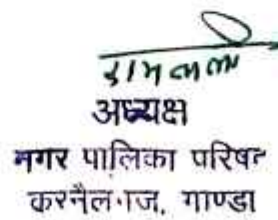 रामलली
अध्यक्ष
नगर पालिका परिषद
करनैलगंज, गोण्डा